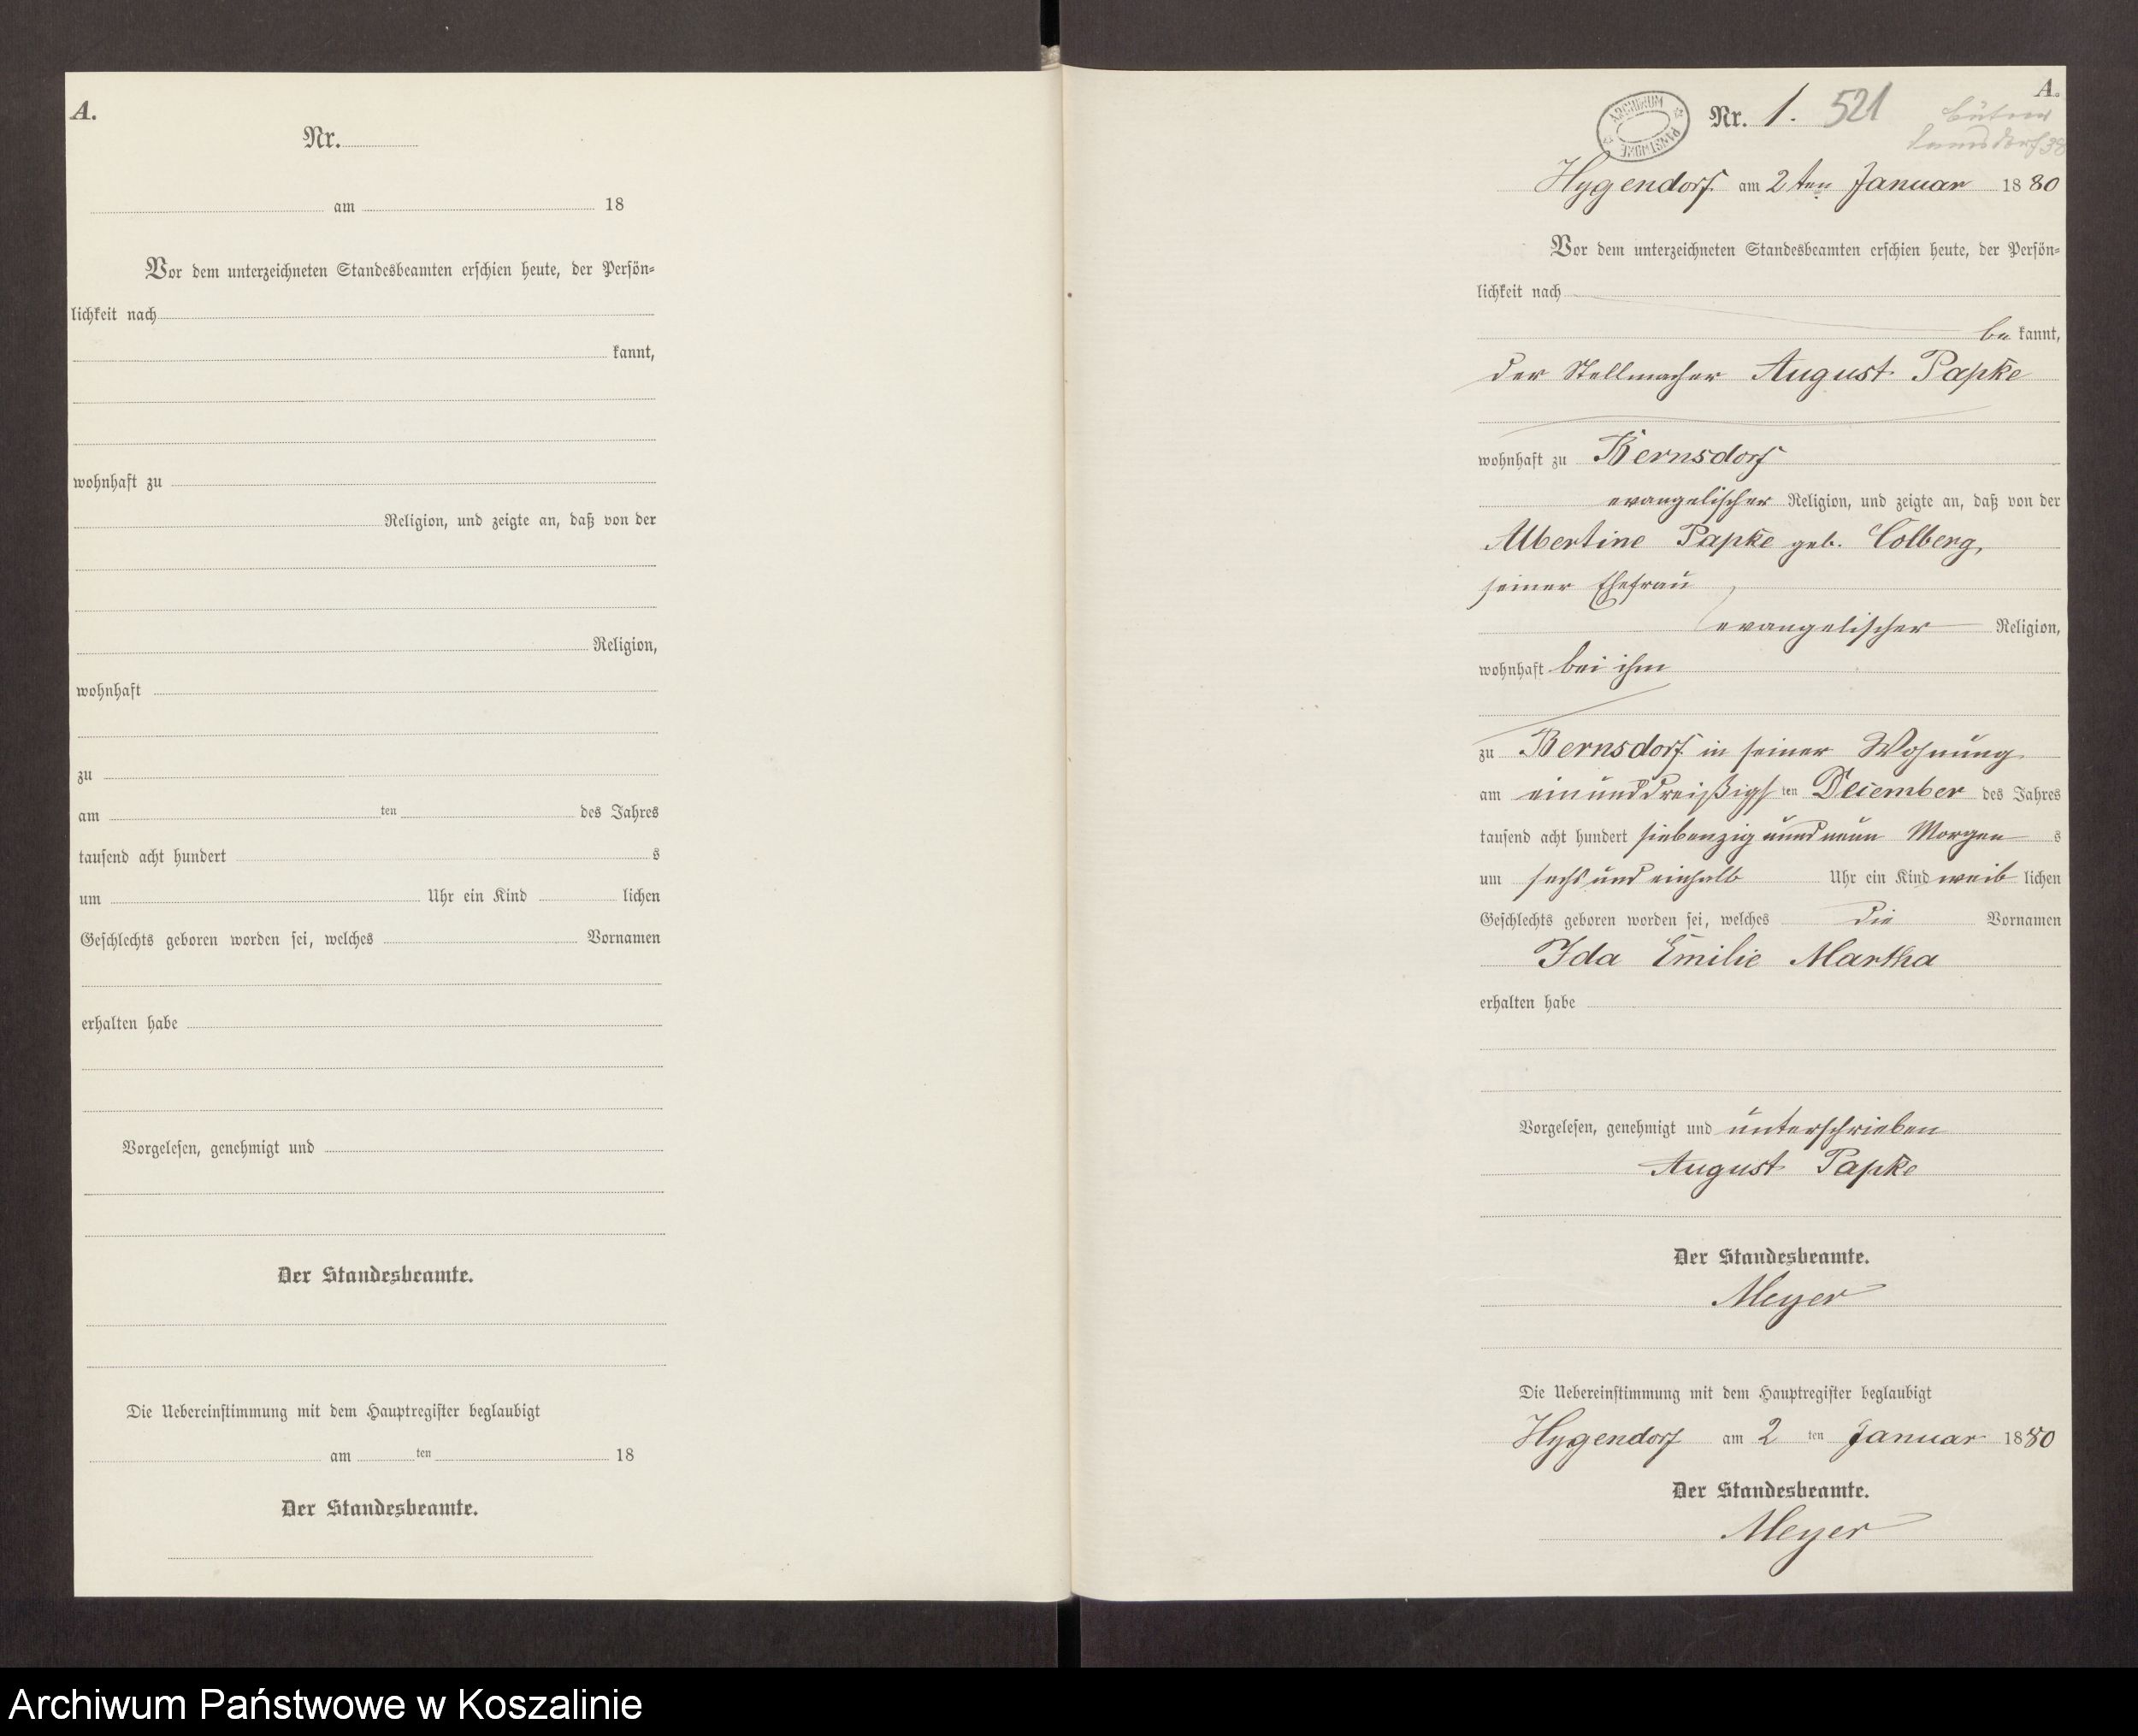 A.
Nr.
am 18
Vor dem unterzeichneten Standesbeamten erschien heute, der Persön-
lichkeit nach
kannt,
wohnhaft zu
Religion, und zeigte an, daß von der
Religion,
wohnhaft
zu
am ten des Jahres
tausend acht hundert s
um Uhr ein Kind lichen
Geschlechts geboren worden sei, welches Vornamen
erhalten habe
Vorgelesen, genehmigt und
Der Standesbeamte.
Die Uebereinstimmung mit dem Hauptregister beglaubigt
am ten 18
Der Standesbeamte.
A.
ARCHIWUM PAŃSTWOWE
Nr. 1. 521
Hygendorf am 2ten Januar 1880
Vor dem unterzeichneten Standesbeamten erschien heute, der Persön-
lichkeit nach
be kannt,
der Stellmacher August Papke
wohnhaft zu Bernsdorf
evangelischer Religion, und zeigte an, daß von der
Albertine Papke geb. Colberg,
seiner Ehefrau
evangelischer Religion,
wohnhaft bei ihm
zu Bernsdorf in seiner Wohnung
am einunddreißigst ten December des Jahres
tausend acht hundert siebenzig und neun Morgen s
um sechs und einhalb Uhr ein Kind weib lichen
Geschlechts geboren worden sei, welches die Vornamen
Ida Emilie Martha
erhalten habe
Vorgelesen, genehmigt und unterschrieben
August Papke
Der Standesbeamte.
Meyer
Die Uebereinstimmung mit dem Hauptregister beglaubigt
Hygendorf am 2 ten Januar 1880
Der Standesbeamte.
Meyer
Archiwum Państwowe w Koszalinie